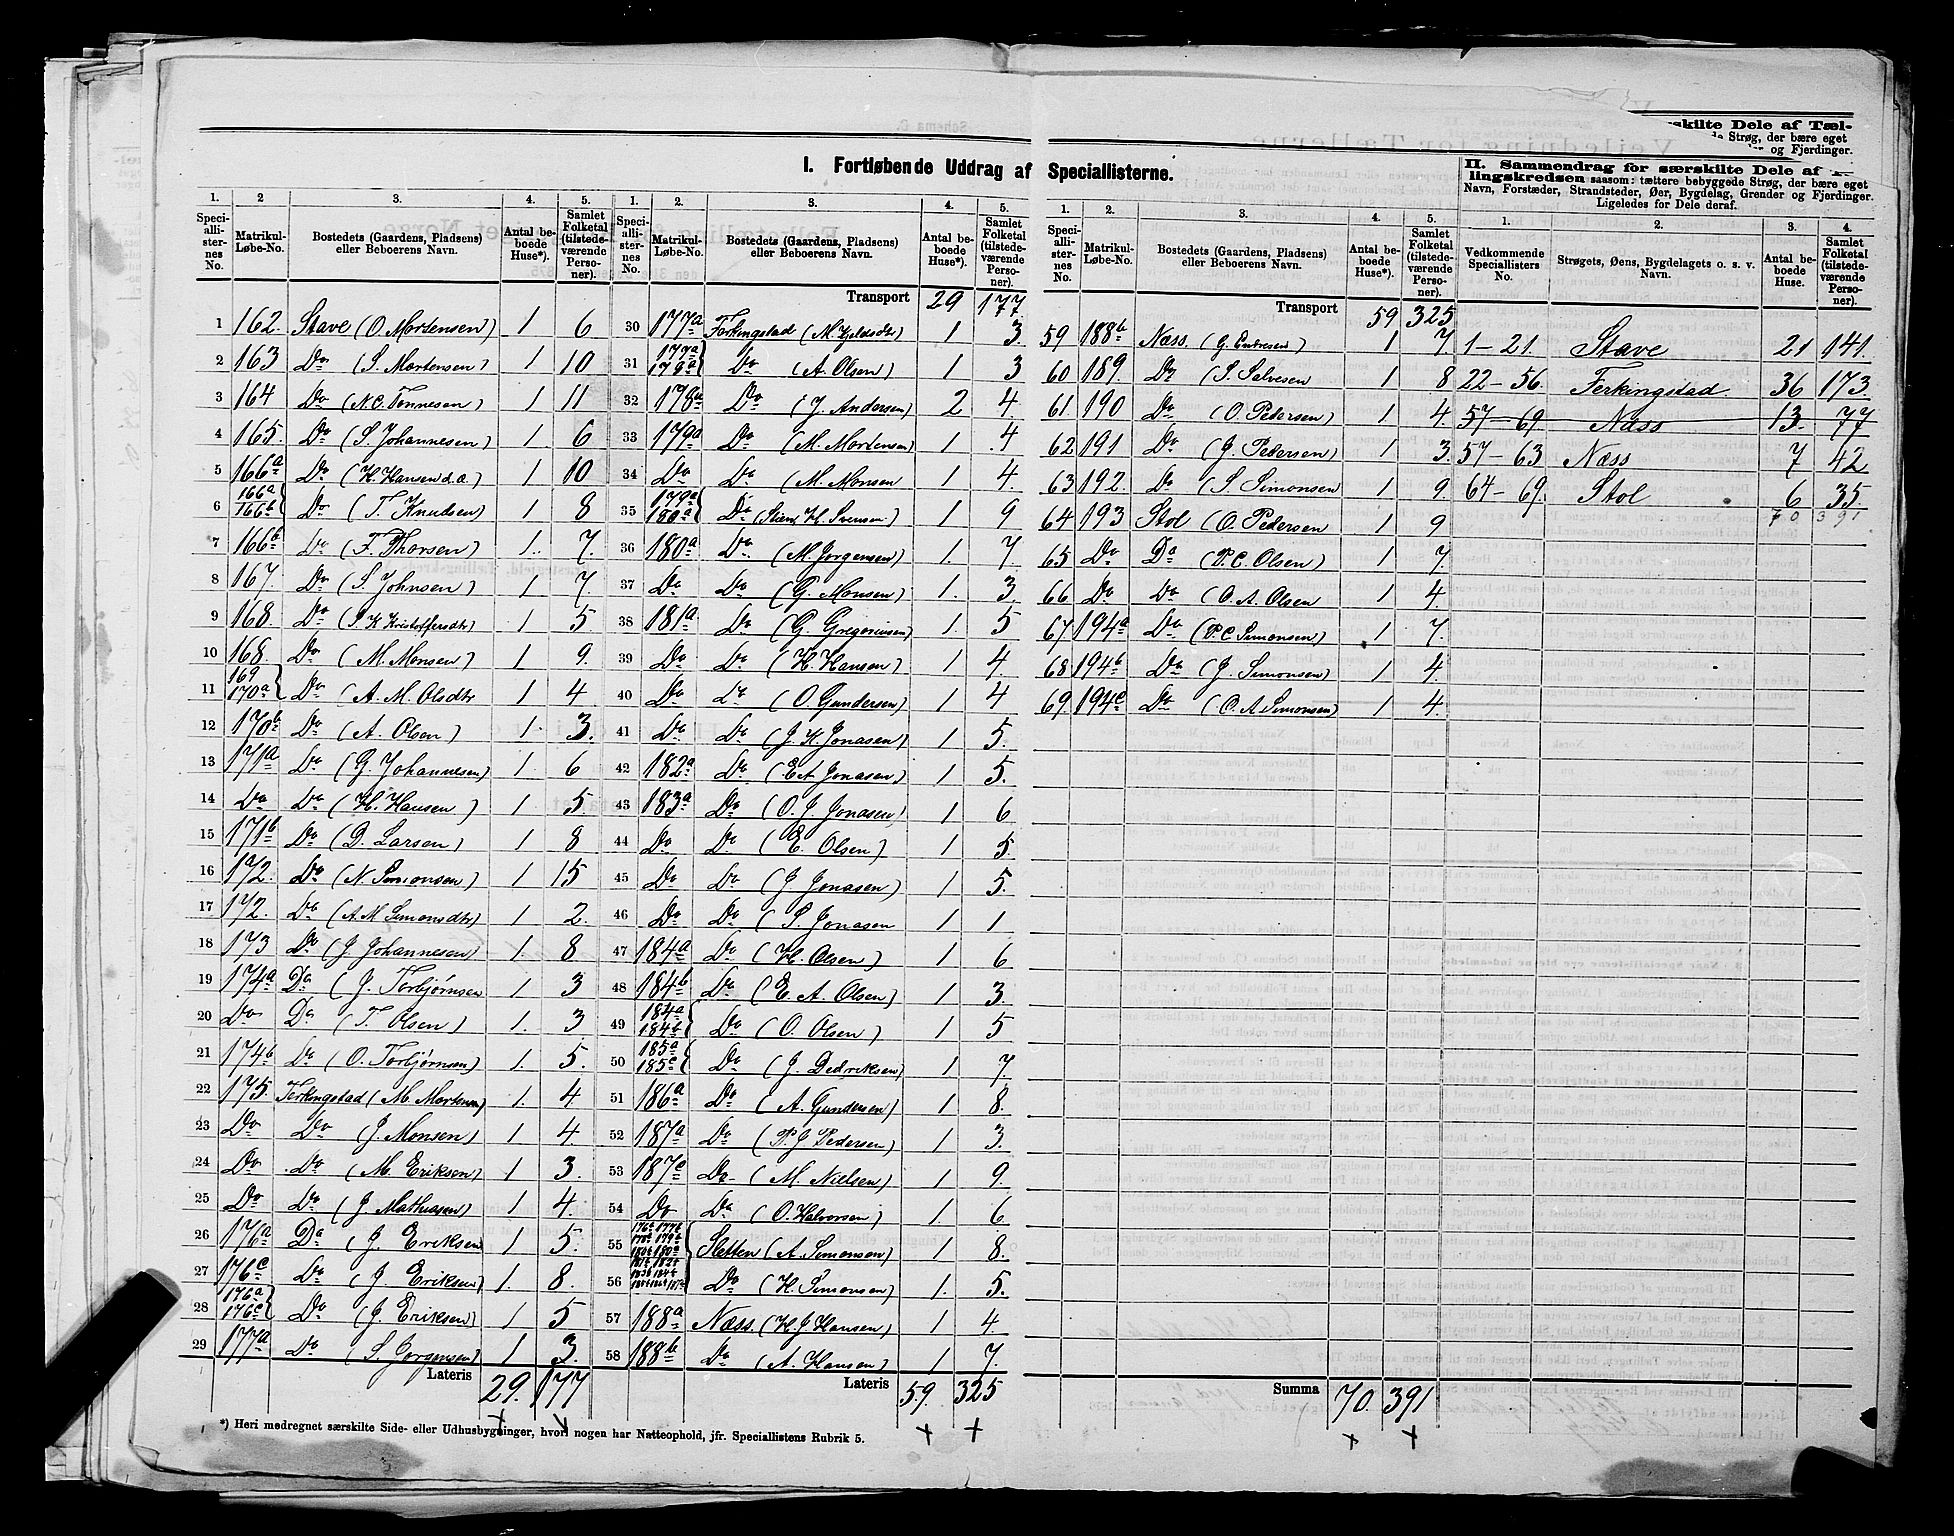 I. Fortløbende Uddrag af Speciallisterne.
skilte Dele af Tæl-
Strøg, der bære eget
og Fjerdinger.
II. Sammendrag for særskilte Dele af
lingskredsen saasom: tættere bebyggede Strøg, der bære eget
Navn, Forstæder, Strandsteder, Øer, Bygdelag, Grender og Fjerdinger.
Ligeledes for Dele deraf.
1. 2 3. 4. 5.
Speciallisternes No. Matrikul-Løbe-No. Bostedets (Gaardens, Pladsens) eller Beboerens Navn. Antal beboede Huse*). Samlet Folketal (tilstedeværende Personer).
1 162. Stave (O. Mortensen) 1 6
2 163 Do (S. Mortensen) 1 10
3 164 Do (N.C. Tønnesen) 1 11
4 165. Do (S. Johannesen) 1. 6
5 166a Do (H. Hansen d.æ.) 1 10
6 166a 166b Do (T. Knudsen) 1 8
7 166b Do (F. Thorsen) 1. 7.
8 167. Do (S. Johnsen) 1 7.
9 168. Do (S. K Kristoffersdtr) 1 5
10 168. Do (M. Monsen) 1 9.
11 169 170a Do (A. M. Olsdtr 1 4
12 170b Do (A. Olsen) 1. 3.
13 171a Do (G. Johannesen) 1. 6
14 Do Do (H. Hansen) 1 5.
15 171b Do (D. Larsen) 1 8
16 172. Do (N. Simonsen) 1 15
17 172. Do (A.M. Simonsdtr) 1 2.
18 173 Do (J. Johannesen) 1. 8
19 174a Do (J. Torbjørnsen 1. 3
20 Do Do (T. Olsen) 1. 3
21 174b Do (O. Torbjørnsen) 1. 5.
22 175. Ferkingstad (M. Mortensen) 1. 4
23 Do Do (J. Monsen) 1 4
24 Do Do (M. Eriksen) 1 3.
25 Do Do (J. Mathiasen) 1 4.
26 176a Do (J. Eriksen 1 5.
27 176c Do (J. Eriksen) 1. 8.
28 176a 176c Do (J. Eriksen) 1 5
29 177a Do (S. Jørgensen) 1 3.
Lateris 29. 177
1. 2. 3. 4. 5.
Speciallisternes No. Matrikul-Løbe-No. Bostedets (Gaardens, Pladsens) eller Beboerens Navn. Antal beboede Huse*). Samlet Folketal (tilstedeværende Personer).
Transport 29 177.
30 177a Ferkingstad (M. ) 1 3.
31 177a 178a Do (A. Olsen) 1 3
32 178a Do (J. Andersen) 2 4
33 179a Do (M. Mortensen) 1. 4
34 Do Do (M. Monsen 1 4.
35 179a 180a Do ( H. Svensen) 1 9
36 180a Do (M. Jørgensen) 1. 7.
37 Do Do (G. Monsen) 1. 3.
38 181a Do (G. Gregoriussen) 1. 5
39 Do Do (H. Hansen) 1 4.
40 Do Do (O. Gundersen) 1 4
41 Do Do (J. K. Jonasen) 1 5.
42 182a Do (E A Jonasen) 1 5.
43 183a Do (O. J. Jonasen) 1 6
44 Do Do (E. Olsen) 1 5.
45 Do Do (J. Jonasen) 1 5.
46 Do Do (S. Jonasen 1 1
47 184a Do (H. Olsen) 1 6
48 184b Do (E. A. Olsen) 1 3.
49 184a 184b Do (O. Olsen) 1 5
50 185a 185c Do (J. Dedriksen) 1 7.
51 186a Do (A. Gundersen) 1 8.
52 187a Do (P. J Pedersen) 1 3.
53 187c Do (M. Nielsen) 1 9.
54 Do Do (O. Halvorsen) 1. 6.
55 Sletten (A. Simonsen) 1 8.
56 Do (H. Simonsen) 1. 5.
57 188a Næss. (H. J Hansen) 1 4.
58 188b Do (A. Hansen) 1 7.
Lateris 59. 325
1. 2. 3. 4. 5.
Speciallisternes No. Matrikul-Løbe-No. Bostedets (Gaardens, Pladsens) eller Beboerens Navn. Antal beboede Huse*). Samlet Folketal (tilstedeværende Personer).
Transport 59 325
59 188b Næss. (G. Endresen) 1 7
60 189. Do (S. Salvesen 1 8
61. 190 Do (O. Pedersen) 1 4.
62 191 Do (J. Pedersen) 1 3.
63 192. Do (S. Simonsen 1 9.
64 193 Stol (O. Pedersen 1 9
65. Do Do (P.C. Olsen) 1 7.
66 Do Do (O. A. Olsen 1 4.
67 194a Do (P.C Simonsen) 1 7.
68 194b Do (J. Simonsen) 1 4.
69. 194c Do (O. A Simonsen) 1 4.
Summa 70. 391
1. 2. 3. 4.
Vedkommende Speciallisters No. Strøgets, Øens, Bygdelagets o. s. v. Navn. Antal beboede Huse. Samlet Folketal (tilstedeværende Personer).
1-21. Stave 21 141.
22-56. Ferkingstad. 36 173.
57-69. Næss 13. 77
57-63 Næss 7 42
64-69. Stol 6 35.
70 391
*) Heri medregnet særskilte Side- eller Udhusbygninger, hvori nogen har Natteophold, jfr. Speciallistens Rubrik 5.